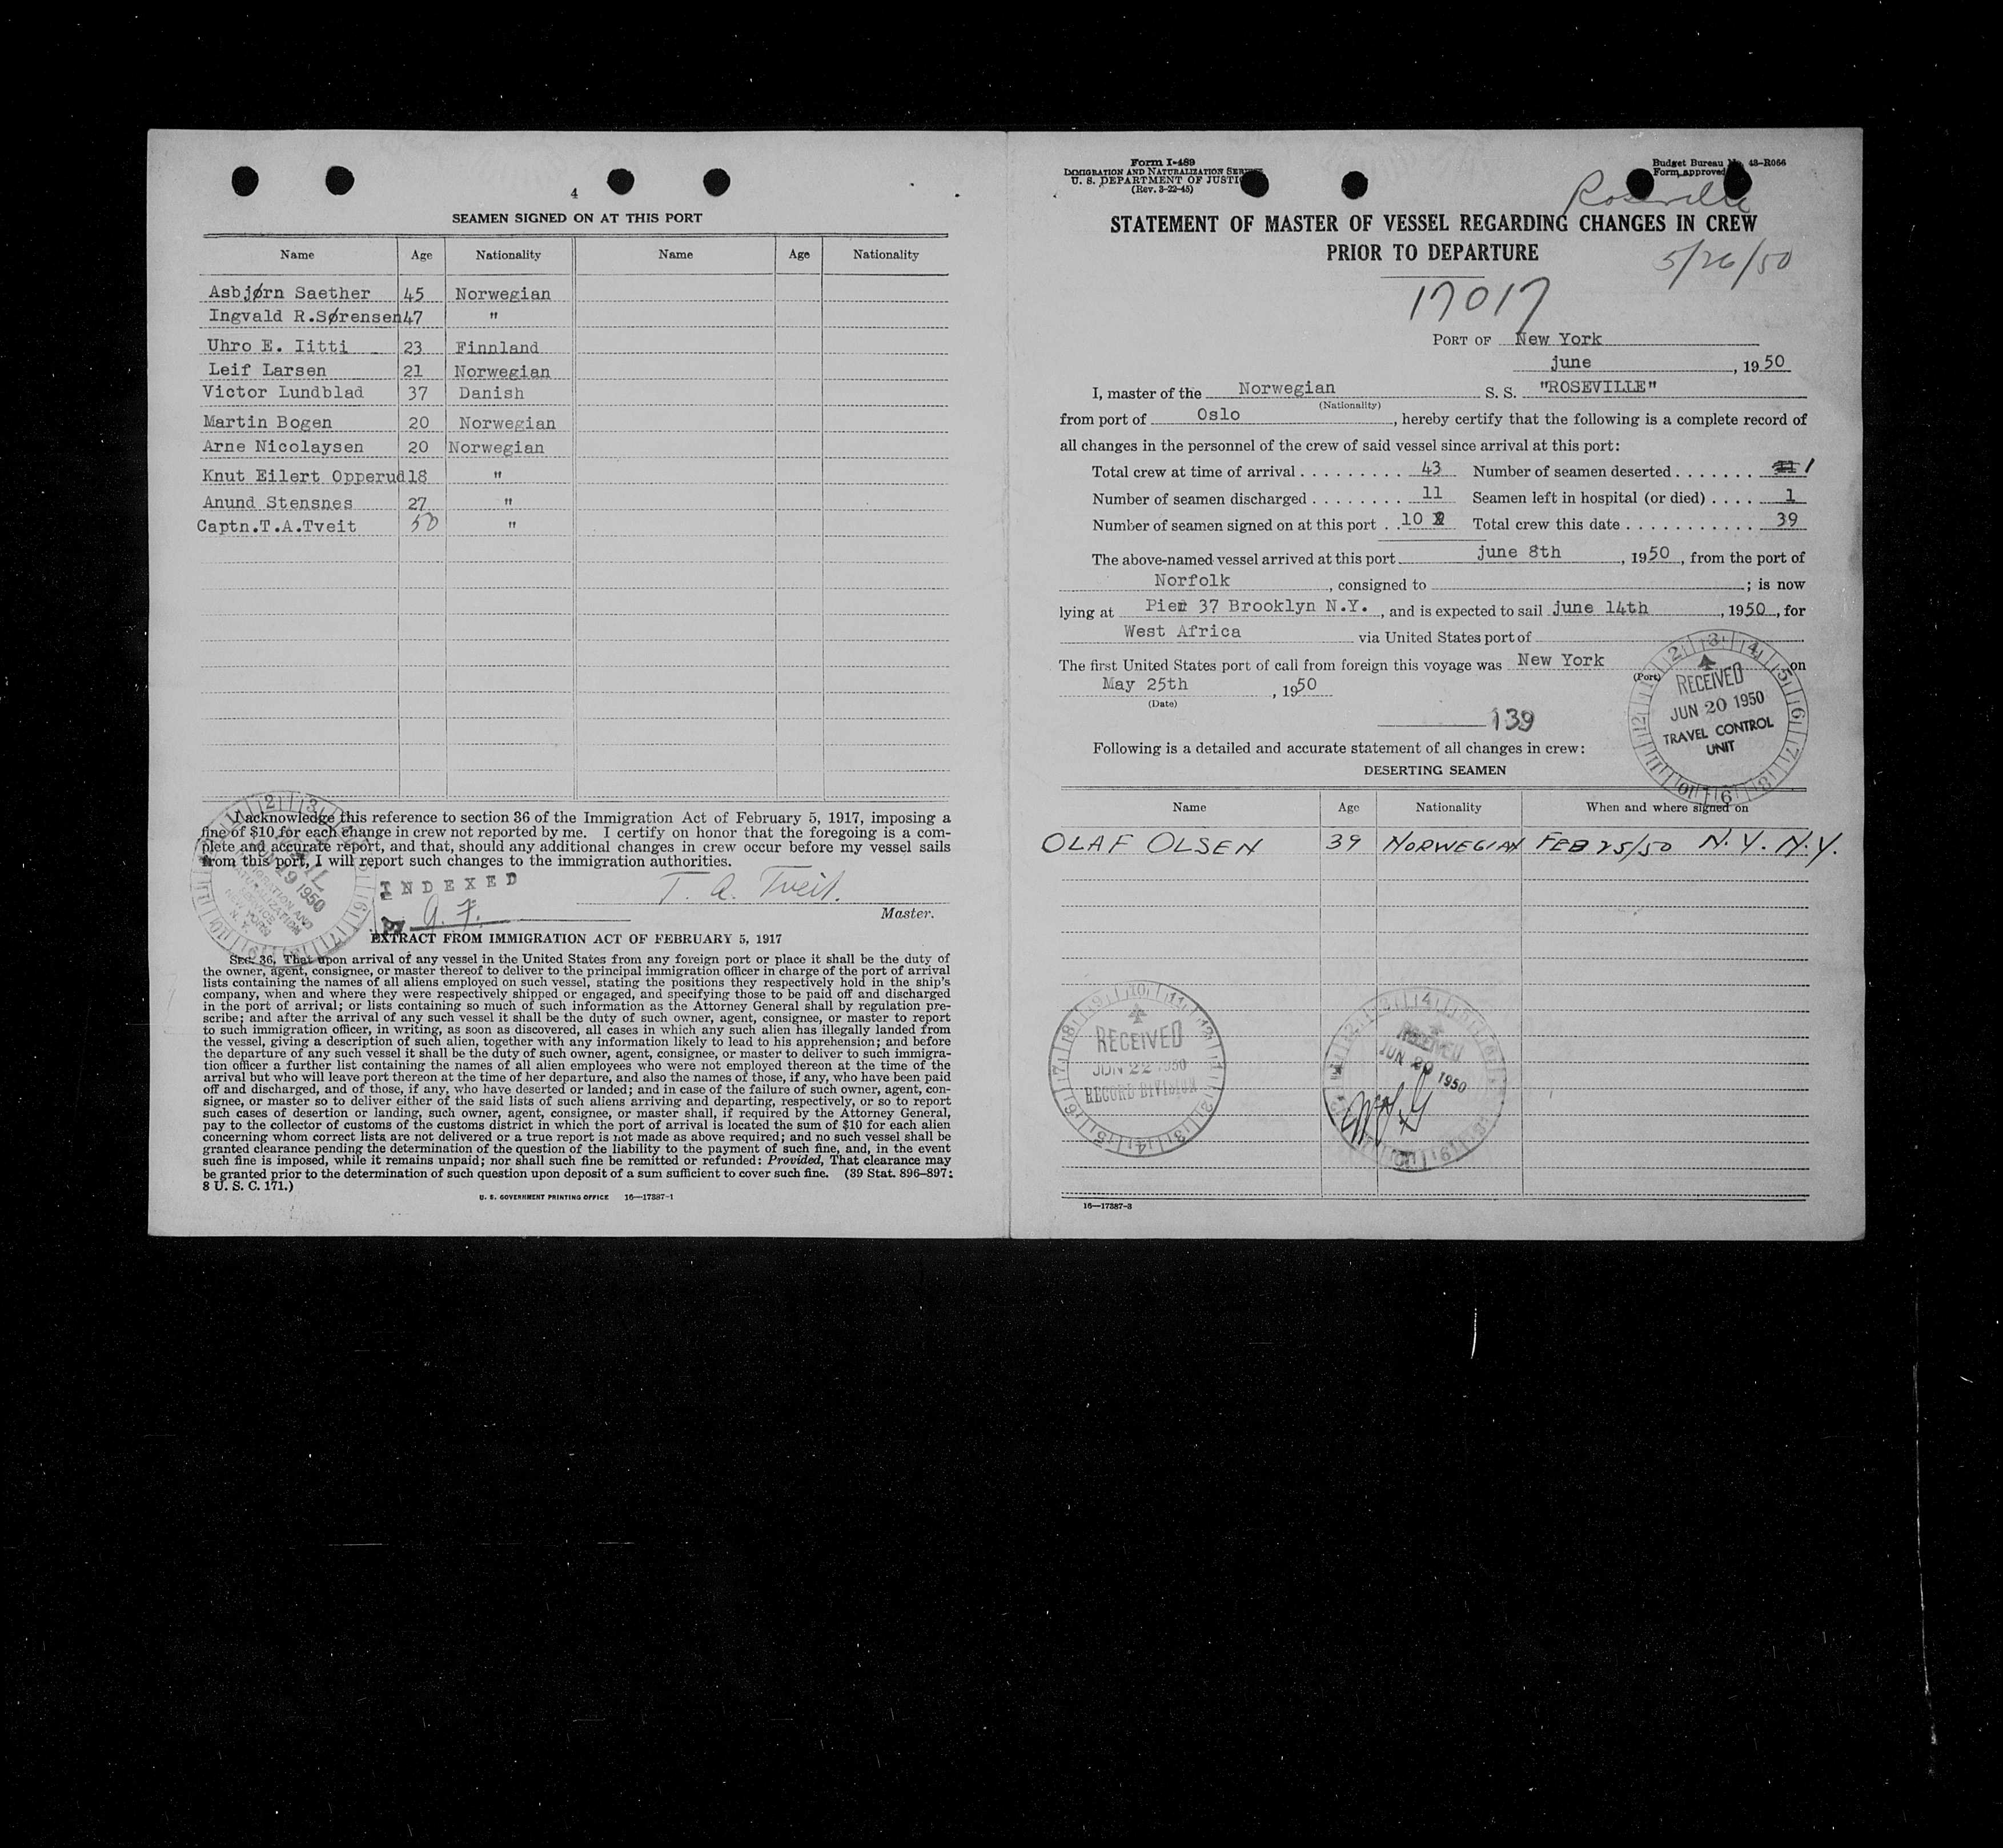 4
SEAMEN SIGNED ON AT THIS PORT
Name Age Nationality Name Age Nationality
Asbjørn Saether 45 Norwegian
Ingvald R.Sørensen 47 "
Uhro E. Iitti 23 Finnland
Leif Larsen 21 Norwegian
Victor Lundblad 37 Danish
Martin Bogen 20 Norwegian
Arne Nicolaysen 20 Norwegian
Knut Eilert Opperud 18 "
Anund Stensnes 27 "
Captn.T.A.Tveit 50 "
I acknowledge this reference to section 36 of the Immigration Act of February 5, 1917, imposing a
fine of $10 for each change in crew not reported by me. I certify on honor that the foregoing is a com-
plete and accurate report, and that, should any additional changes in crew occur before my vessel sails
from this port, I will report such changes to the immigration authorities.
INDEXED
T. A. Tveit.
Master.
EXTRACT FROM IMMIGRATION ACT OF FEBRUARY 5, 1917
SEC. 36. That upon arrival of any vessel in the United States from any foreign port or place it shall be the duty of
the owner, agent, consignee, or master thereof to deliver to the principal immigration officer in charge of the port of arrival
lists containing the names of all aliens employed on such vessel, stating the positions they respectively hold in the ship's
company, when and where they were respectively shipped or engaged, and specifying those to be paid off and discharged
in the port of arrival; or lists containing so much of such information as the Attorney General shall by regulation pre-
scribe; and after the arrival of any such vessel it shall be the duty of such owner, agent, consignee, or master to report
to such immigration officer, in writing, as soon as discovered, all cases in which any such alien has illegally landed from
the vessel, giving a description of such alien, together with any information likely to lead to his apprehension; and before
the departure of any such vessel it shall be the duty of such owner, agent, consignee, or master to deliver to such immigra-
tion officer a further list containing the names of all alien employees who were not employed thereon at the time of the
arrival but who will leave port thereon at the time of her departure, and also the names of those, if any, who have been paid
off and discharged, and of those, if any, who have deserted or landed; and in case of the failure of such owner, agent, con-
signee, or master so to deliver either of the said lists of such aliens arriving and departing, respectively, or so to report
such cases of desertion or landing, such owner, agent, consignee, or master shall, if required by the Attorney General,
pay to the collector of customs of the customs district in which the port of arrival is located the sum of $10 for each alien
concerning whom correct lists are not delivered or a true report is not made as above required; and no such vessel shall be
granted clearance pending the determination of the question of the liability to the payment of such fine, and, in the event
such fine is imposed, while it remains unpaid; nor shall such fine be remitted or refunded: Provided, That clearance may
be granted prior to the determination of such question upon deposit of a sum sufficient to cover such fine. (39 Stat. 896–897;
8 U. S. C. 171.)
U. S. GOVERNMENT PRINTING OFFICE 16—17387-1
Form I-489
IMMIGRATION AND NATURALIZATION
U. S. DEPARTMENT OF
(Rev. 3-22-45)
Budget Bureau 43-R066
Form approved
Roseville
STATEMENT OF MASTER OF VESSEL REGARDING CHANGES IN CREW
PRIOR TO DEPARTURE
5/26/50
17017
PORT OF New York
june , 1950
I, master of the Norwegian S. S. "ROSEVILLE"
(Nationality)
from port of Oslo , hereby certify that the following is a complete record of
all changes in the personnel of the crew of said vessel since arrival at this port:
Total crew at time of arrival . . . . . . . . . 43 Number of seamen deserted . . . . . . . 1
Number of seamen discharged . . . . . . . . 11 Seamen left in hospital (or died) . . . . 1
Number of seamen signed on at this port . . 10 Total crew this date . . . . . . . . . . . 39
The above-named vessel arrived at this port june 8th , 1950 , from the port of
Norfolk , consigned to ; is now
lying at Pier 37 Brooklyn N.Y. , and is expected to sail june 14th , 1950 , for
West Africa via United States port of
The first United States port of call from foreign this voyage was New York on
(Port)
May 25th , 1950
(Date)
RECEIVED
JUN 20 1950
TRAVEL CONTROL
UNIT
139
Following is a detailed and accurate statement of all changes in crew:
DESERTING SEAMEN
Name Age Nationality When and where signed on
OLAF OLSEN 39 NORWEGIAN FEB 25/50 N.Y. N.Y.
RECEIVED
JUN 22 1950
RECORD DIVISION
RECEIVED
JUN 20 1950
16—17387-3